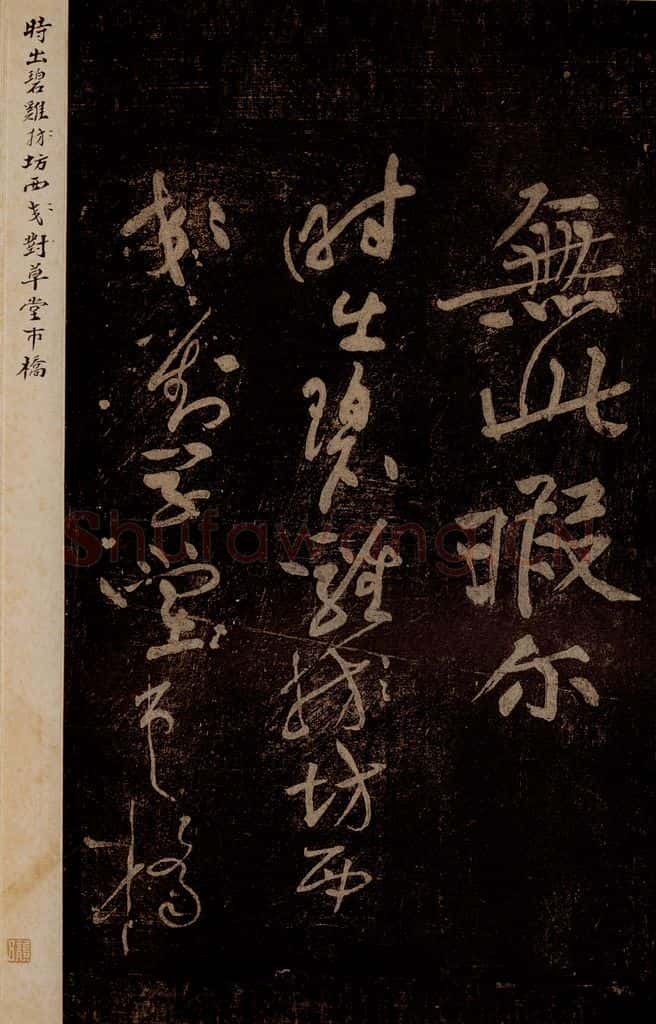 無此暇尔
時出碧雞坊西
對草堂市橋
時出碧雞坊西對草堂市橋
Shufawang.CN